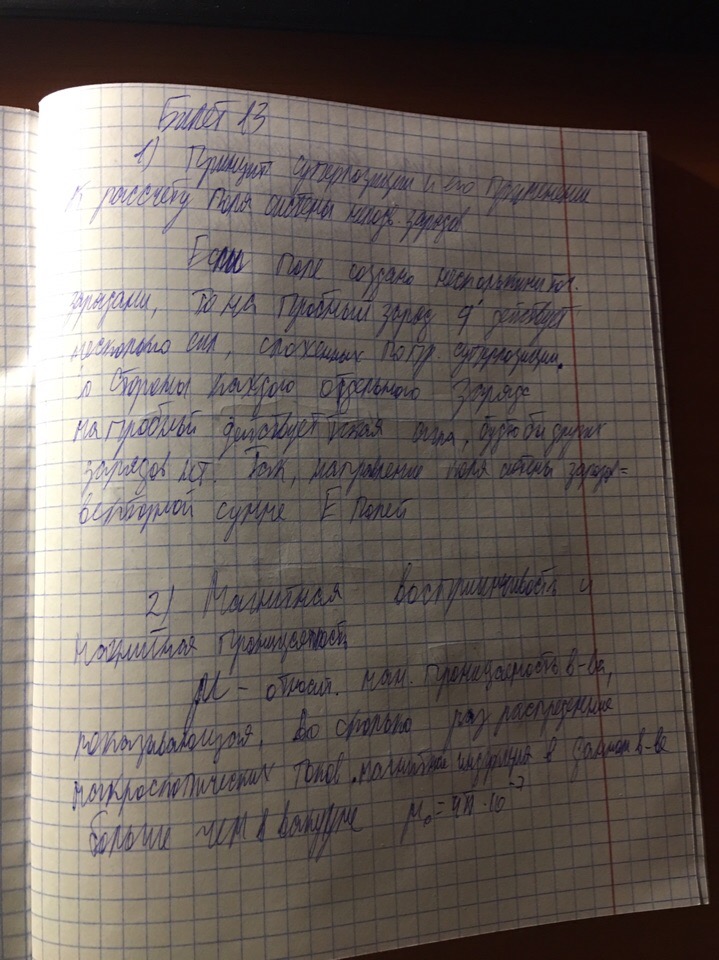 Билет 13
1) Принцип суперпозиции и его применение
к рассчету поля системы неподв. зарядов
Если поле создано несколькими точ.
зарядами, то на пробный заряд q' действует
несколько сил, сложенных по пр. суперпозиции.
Со стороны каждого отдельного заряда
на пробный действует такая сила, будто бы других
зарядов нет. Так, направление поля системы зарядов =
векторной сумме E полей
2) Магнитная восприимчивость и
магнитная проницаемость
μ – относит. маг. проницаемость в-ва,
показывающая, во сколько раз распределение
макроскопических токов магнитная индукция в данном в-ве
больше чем в вакууме μ₀ = 4π · 10⁻⁷